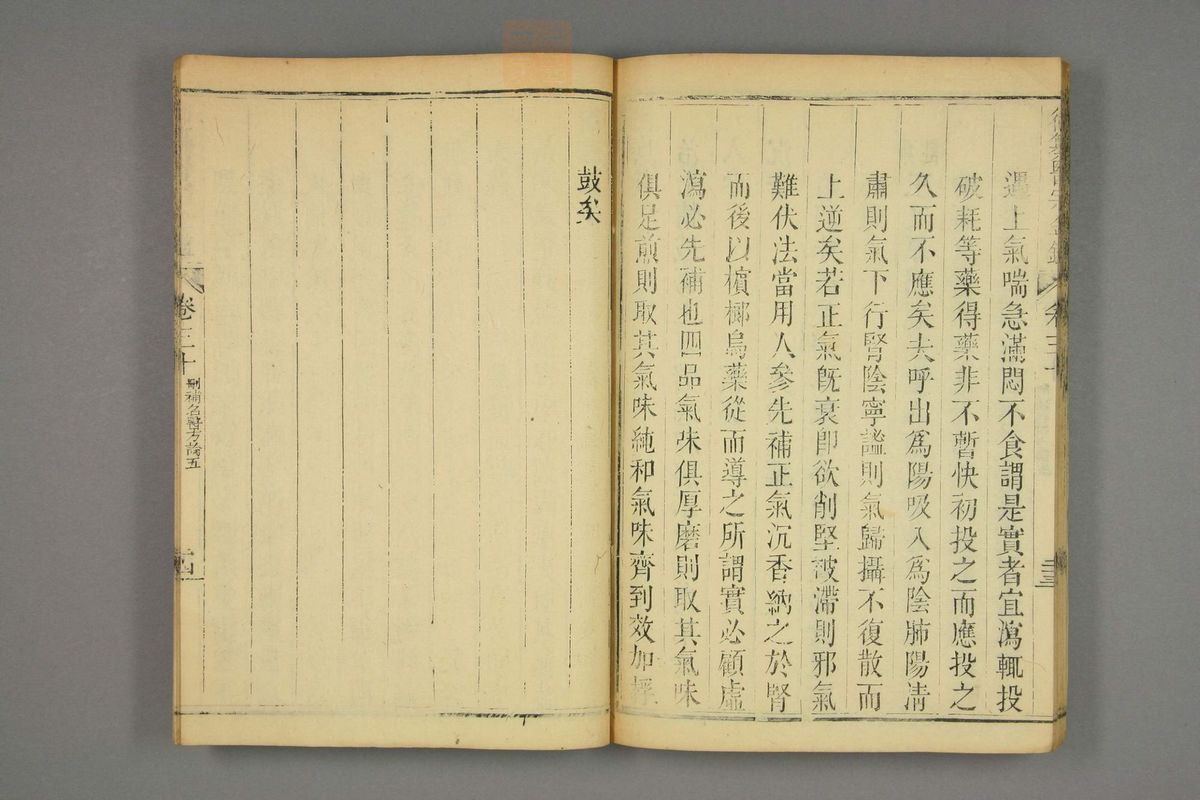 遇上氣喘急滿悶不食謂是實者宜瀉輒投
破耗等藥得藥非不暫快初投之而應投之
久而不應矣夫呼出爲陽吸入爲陰肺陽清
肅則氣下行腎陰寧謐則氣歸攝不復散而
上逆矣若正氣旣衰即欲削堅破滯則邪氣
難伏法當用人參先補正氣沉香納之於腎
而後以檳榔烏藥從而導之所謂實必顧虛
瀉必先補也四品氣味俱厚磨則取其氣味
俱足煎則取其氣味純和氣味齊到效如桴
鼓矣
卷三十
刪補名醫方論五